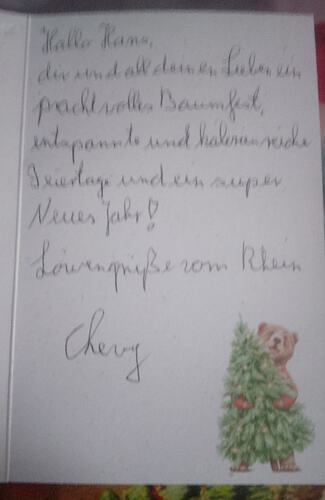 Hallo Hans,
dir und all deinen Lieben ein
prachtvolles Baumfest,
entspannte und kalorienreiche
Feiertage und ein super
Neues Jahr!
Löwengrüße vom Rhein
Chevy